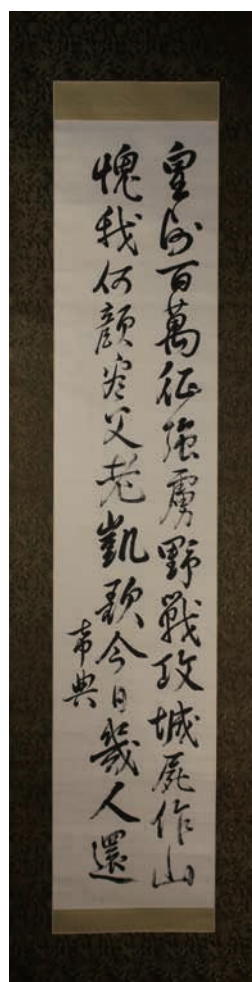 皇師百萬征強虜野戰攻城屍作山
愧我何顔看父老凱歌今日幾人還
希典